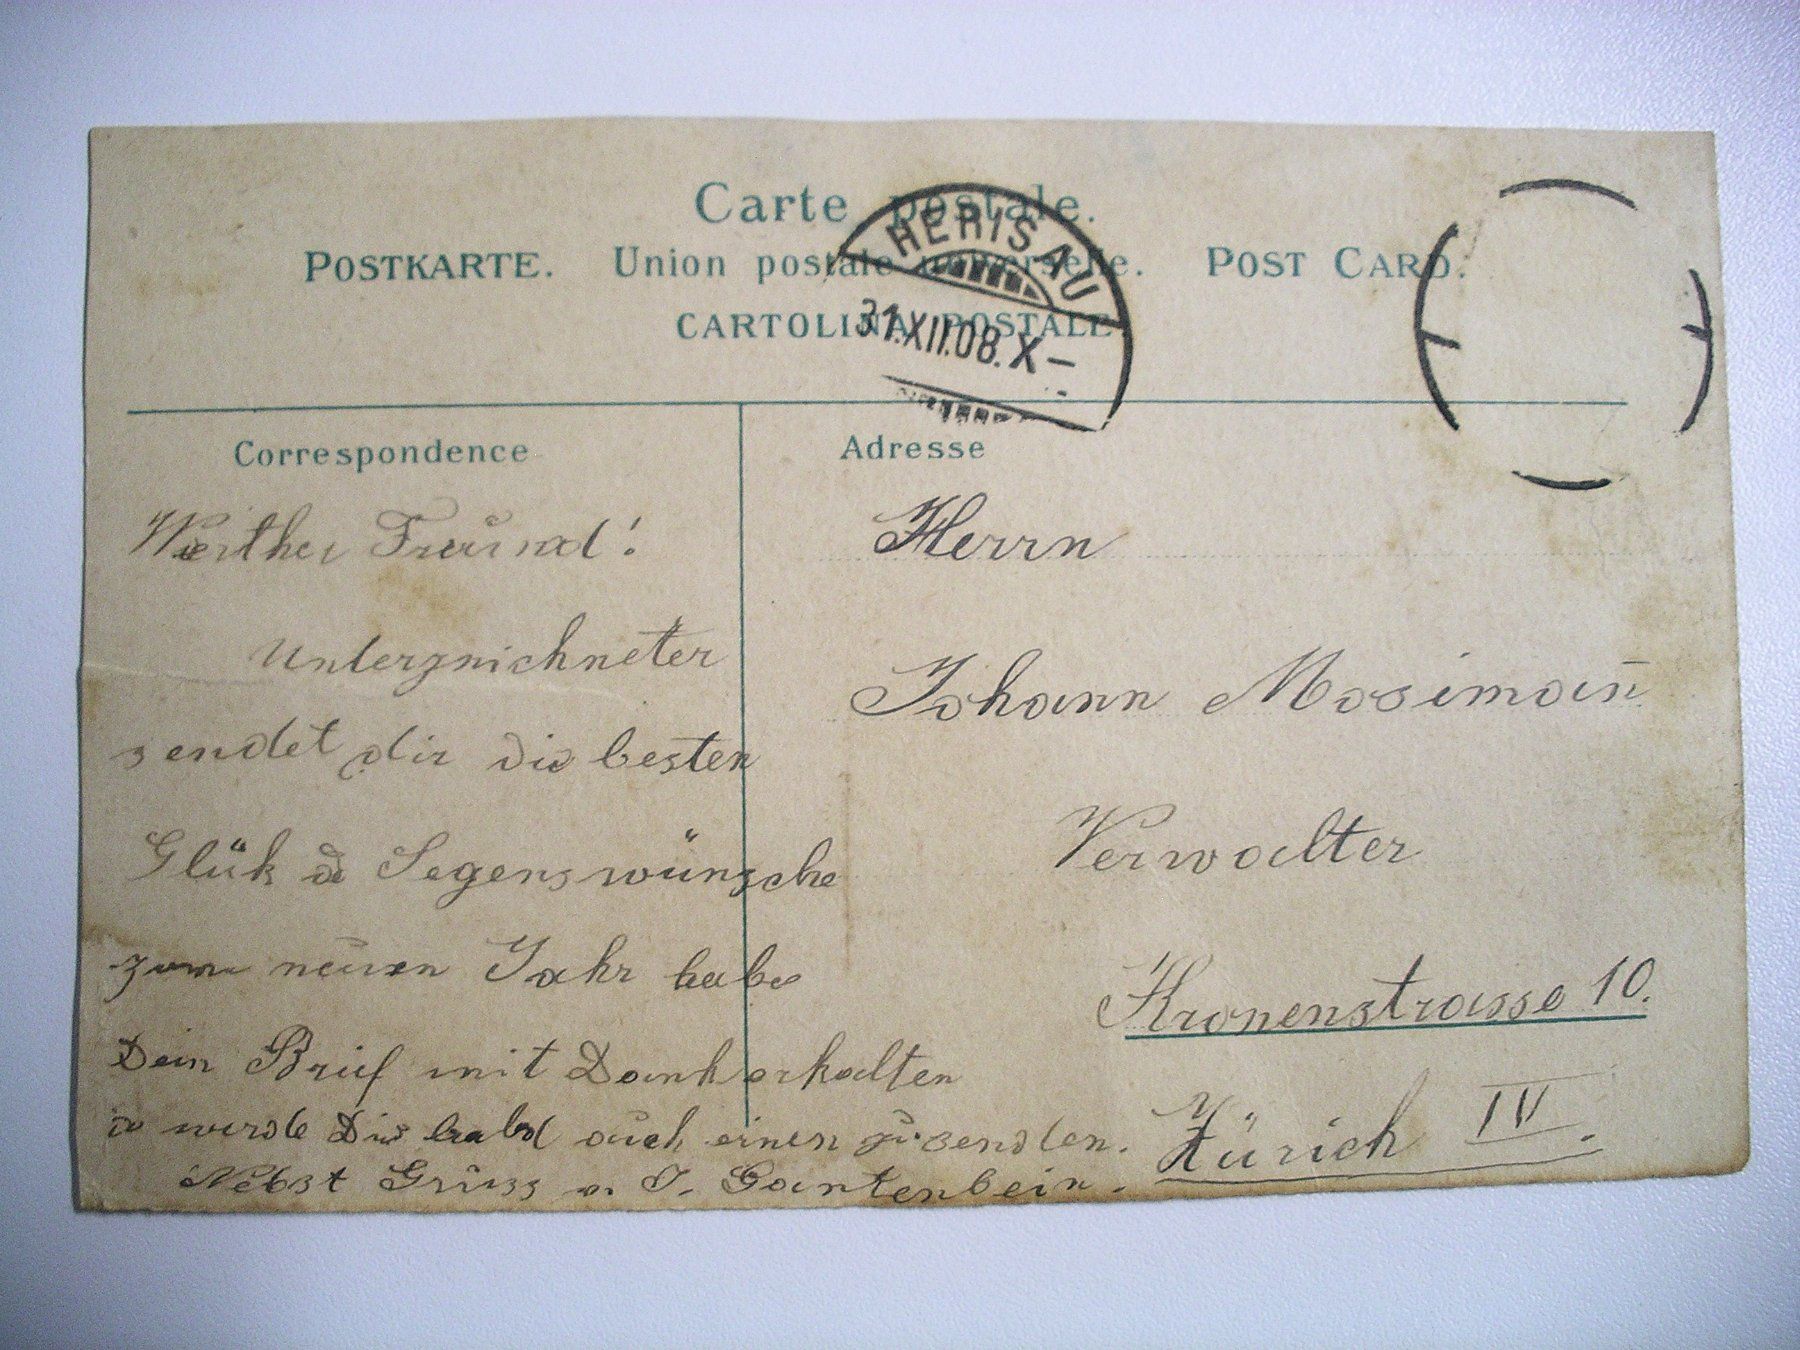 Carte postale.
POSTKARTE. Union postale universelle. POST CARD.
CARTOLINA POSTALE
HERISAU
31.XII.08.X–
Correspondence
Werther Freund!
Unterzeichneter
sendet dir die besten
Glük & Segenswünsche
zum neuen Jahr habe
Dein Brief mit Dank erhalten
u werde Dir bald auch einen zusenden.
Nebst Gruss v. J. Gantenbein.
Adresse
Herrn
Johann Mosiman̄
Verwalter
Kronenstrasse 10.
Zürich IV.